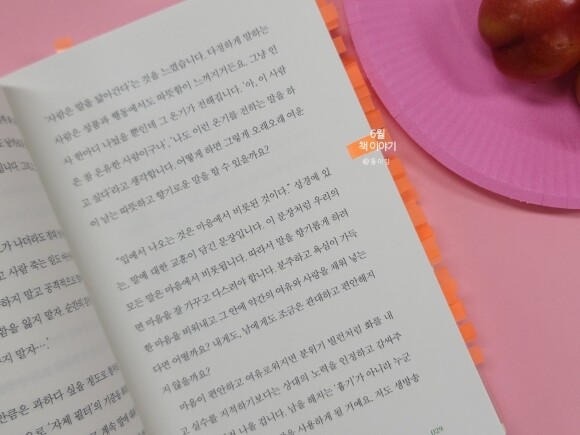 '사람은 말을 닮아간다'는 것을 느꼈습니다. 다정하게 말하는
사람은 성품과 행동에서도 따뜻함이 느껴지거든요. 그냥 인
사 한마디 나눴을 뿐인데 그 온기가 전해집니다. '아, 이 사람
은 참 온유한 사람이구나', '나도 이런 온기를 전하는 말을 하
고 싶다'라고 생각합니다. 어떻게 하면 그렇게 오래오래 여운
이 남는 따뜻하고 향기로운 말을 할 수 있을까요?
"입에서 나오는 것은 마음에서 비롯된 것이다." 성경에 있
는, 말에 대한 교훈이 담긴 문장입니다. 이 문장처럼 우리의
모든 말은 마음에서 비롯됩니다. 따라서 말을 향기롭게 하려
면 마음을 잘 가꾸고 다스려야 합니다. 분주하고 욕심이 가득
한 마음을 비워내고 그 안에 약간의 여유와 사랑을 채워 넣는
다면 어떨까요? 내게도, 남에게도 조금은 관대하고 편안해지
지 않을까요?
마음이 편안하고 여유로워지면 분위기 빌런처럼 화를 내
고 실수를 지적하기보다는 상대의 노력을 인정하고 감싸주
나올 겁니다. 남을 해치는 '흉기'가 아니라 누군
사용하게 될 거예요. 저도 생방송
029
가 나더라도
고 사람 죽는
하지 말고 공격적으로
람을 잃지 말자.
지 말자…'
만큼은 과하다 싶을 정도로
으로 '자체 필터'의 기준을
6월
책 이야기